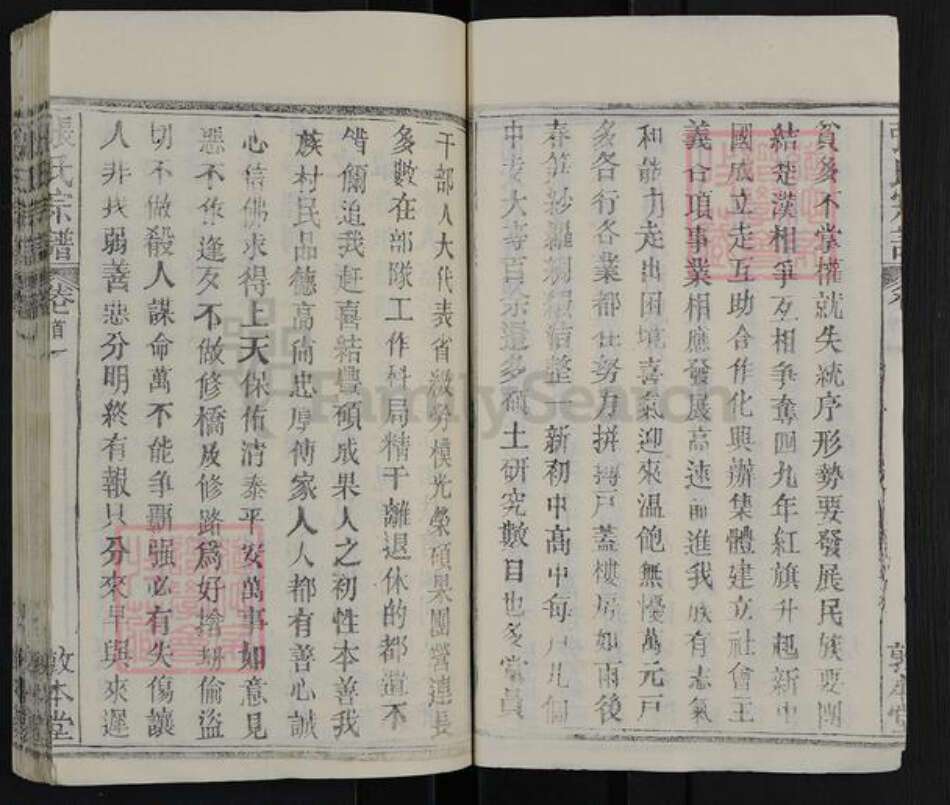 貧多不掌權就失統序形勢要發展民族要團
結楚漢相爭互相爭奪四九年紅旗升起新中
國成立走互助合作化興辦集體建立社會主
義合項事業相應發展高速前進我族有志氣
和能力走出困境喜氣迎來溫飽無憂萬元戶
多各行各業都在努力拼搏戶蓋樓房如雨後
春筍紗羅綢緞潔整一新初中高中每戶几個
中專大專百余還多碩士研究數目也多黨員
干部人大代表省級勞模光榮碩果團營連長
多數在部隊工作科局精干離退休的都這不
惜爾追我赶喜結豐碩成果人之初性本善我
族村民品德高尚忠厚傳家人人都有善心誠
心信佛求得上天保佑清泰平安萬事如意見
惡不作逢歹不做修橋及修路為好搶刧偷盜
切不做殺人謀命萬不能爭鬥强必有失傷讓
人非我弱善惡分明終有報只分來早與來遲
張氏宗譜
卷首
一
敦本堂
FamilySearch